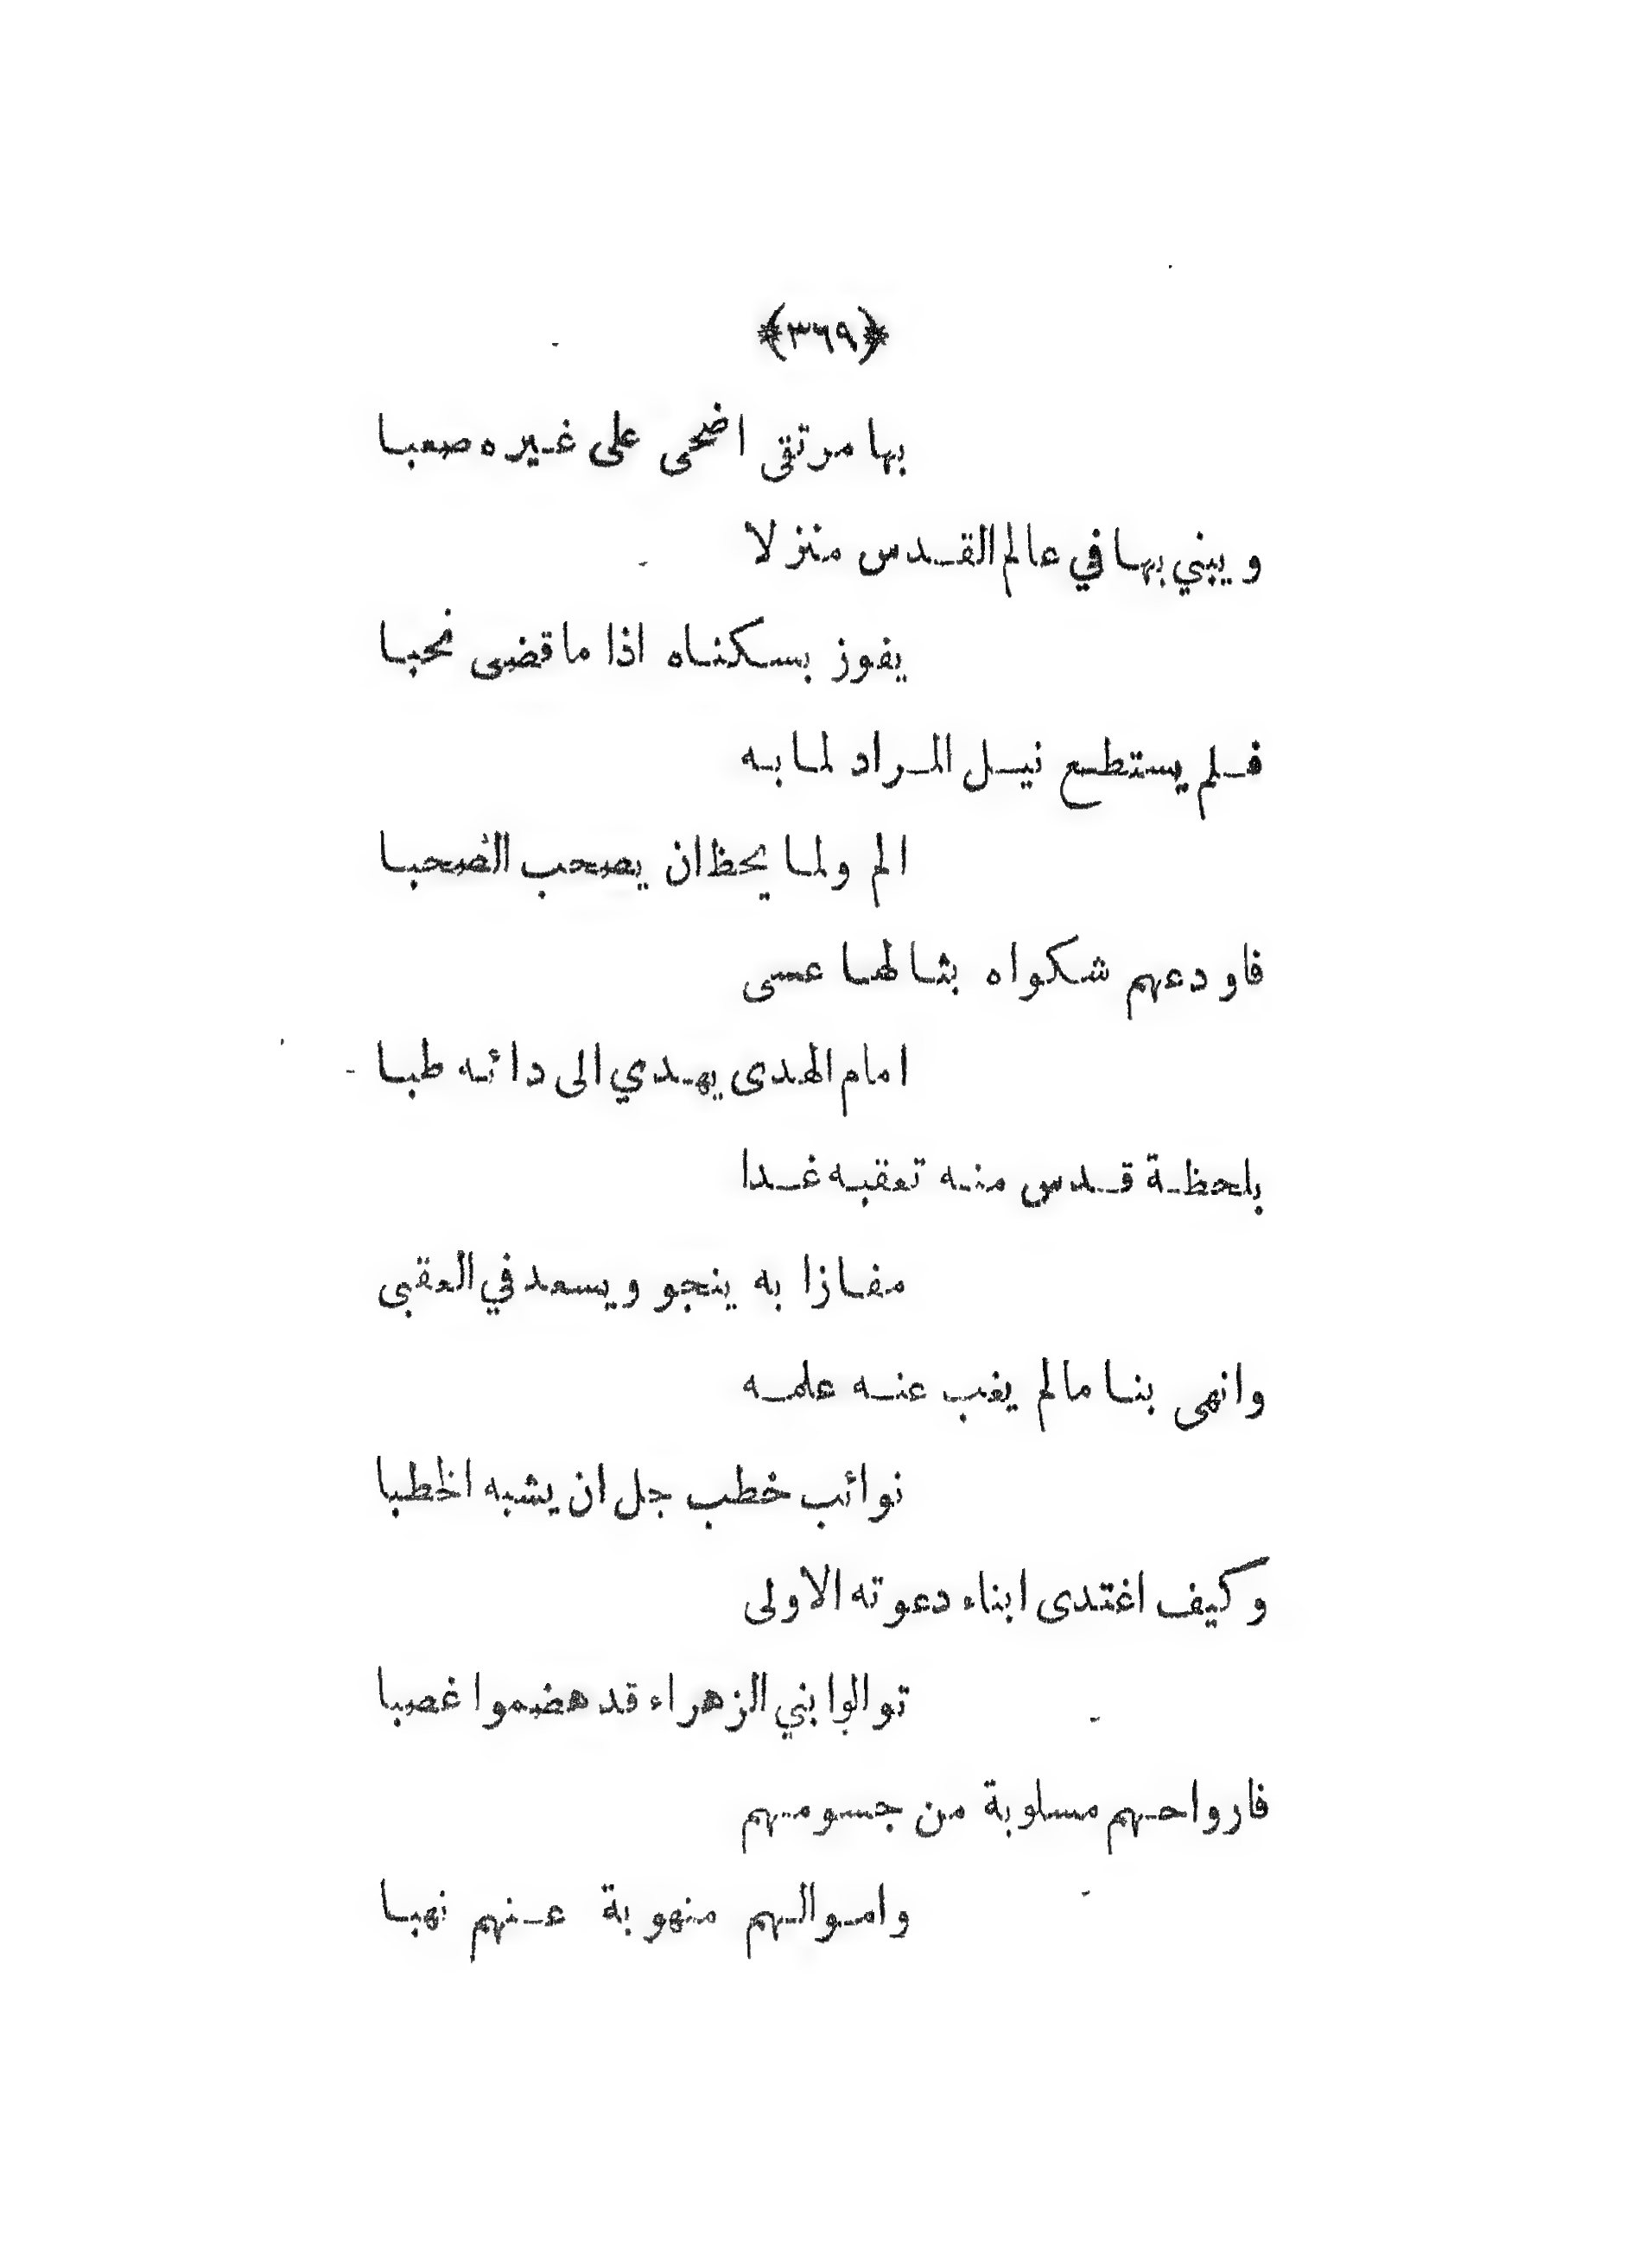 ﴿٣٦٩﴾
بها مرتقى اضحى على غيره صعبا
ويبني بها في عالم القدس منزلا
يفوز بسكناه اذا ما قضى نحبا
فلم يستطع نيل المراد لما به
الم ولما يحظ ان يصحب الصحبا
فاودعهم شكواه بثا لها عسى
امام الهدى يهدي الى دائه طبا
بلحظة قدس منه تعقبه غدا
مفازا به ينجو ويسعد في العقبى
وانهى بنا مالم يغب عنه علمه
نوائب خطب جل ان يشبه الخطبا
وكيف اغتدى ابناء دعوته الاولى
توالوا بني الزهراء قد هضموا غصبا
فارواحهم مسلوبة من جسومهم
واموالهم منهوبة عنهم نهبا